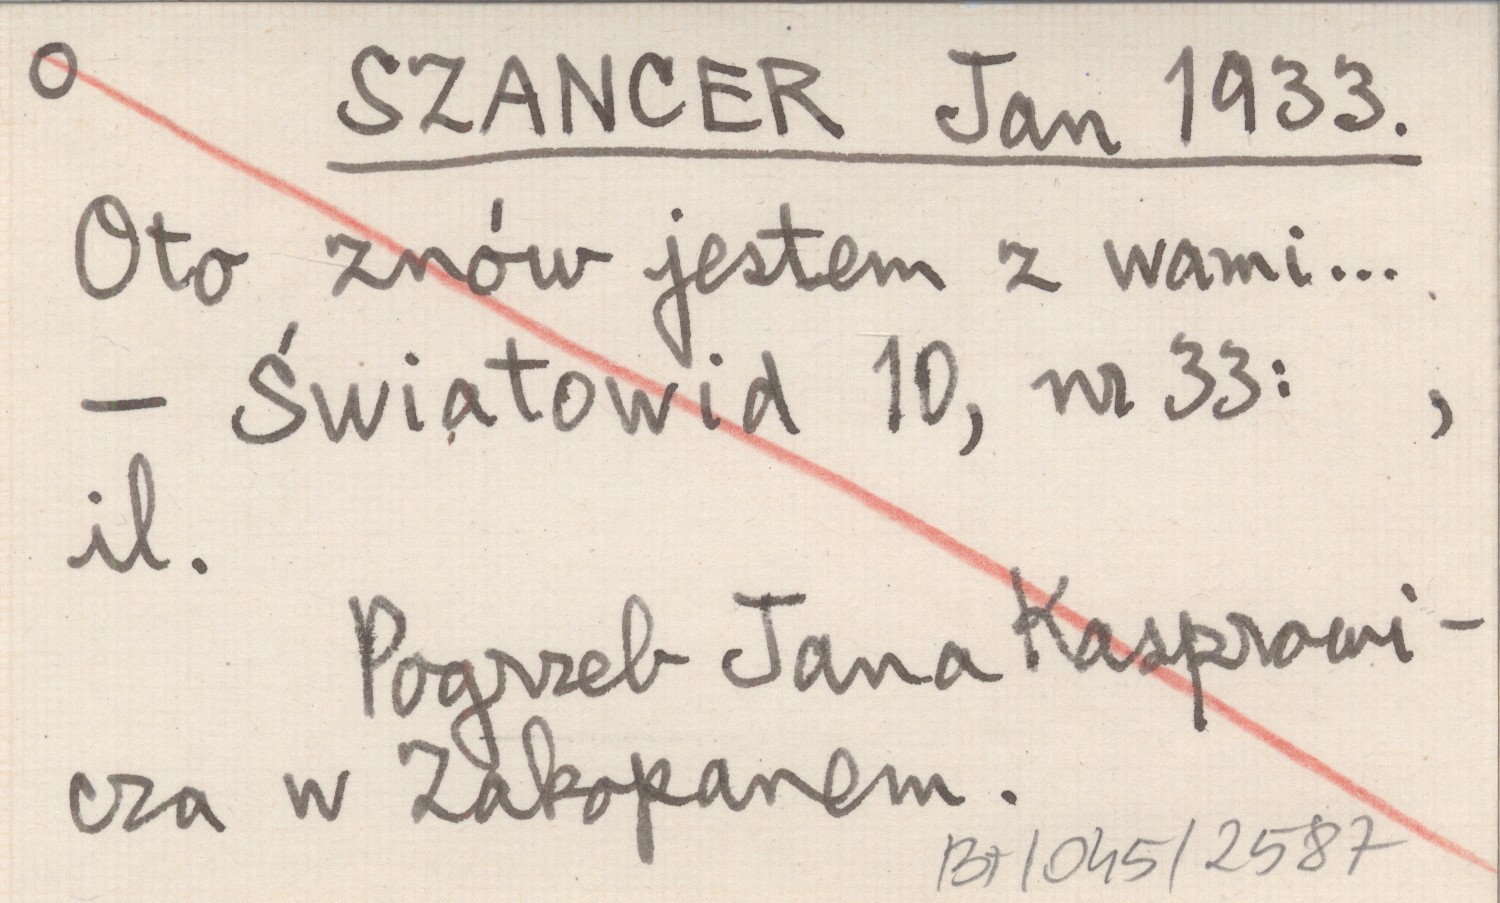 O SZANCER Jan 1933.
Oto znów jestem z wami...
– Światowid 10, nr 33: ,
il.
Pogrzeb Jana Kasprowi-
cza w Zakopanem.
BT/045/2587